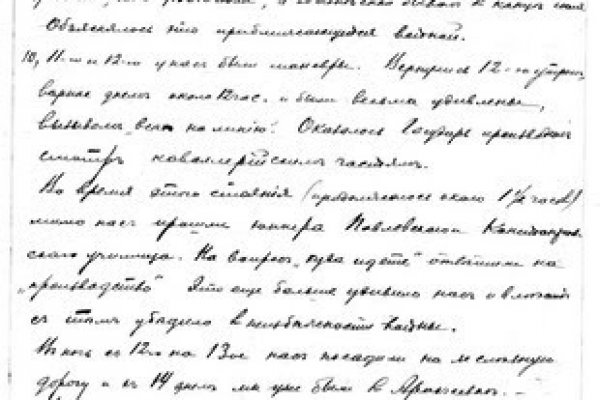 Объяснялось это приближающейся войной.
10, 11-го и 12-го у нас были маневры. Вернулись 12-го утром,
вернее днем около 12 час. и были весьма удивлены,
вызовом „всех на линию“. Оказалось Государь производил
смотр кавалерийским частям.
Во время этого стояния (продолжалось около 1 1/2 часов)
мимо нас прошли юнкера Павловского
ского училища. На вопрос „куда идете“ отвечали на
„производство“ Это еще больше удивило нас и
с тем убедило в неизбежности войны.
В ночь с 12-го на 13-ое нас посадили на железную
дорогу и 14 днем мы уже были в